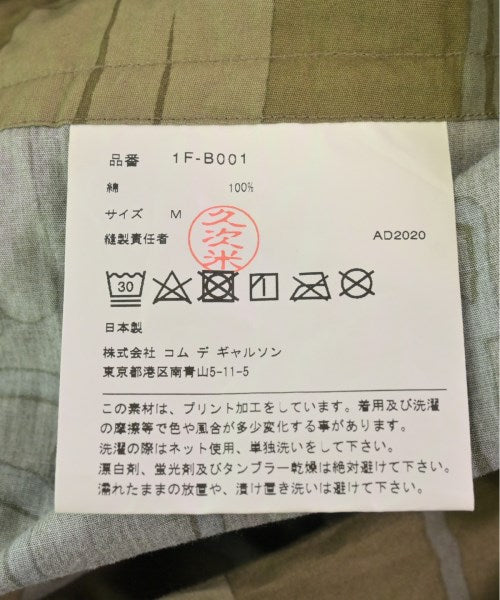 品番 1F-B001
綿 100%
サイズ M
縫製責任者 久次米 AD2020
30
日本製
株式会社 コム デ ギャルソン
東京都港区南青山5-11-5
この素材は、プリント加工をしています。着用及び洗濯
の摩擦等で色や風合が多少変化する事があります。
洗濯の際はネット使用、単独洗いをして下さい。
漂白剤、蛍光剤及びタンブラー乾燥は絶対避けて下さい。
濡れたままの放置や、漬け置き洗いは避けて下さい。